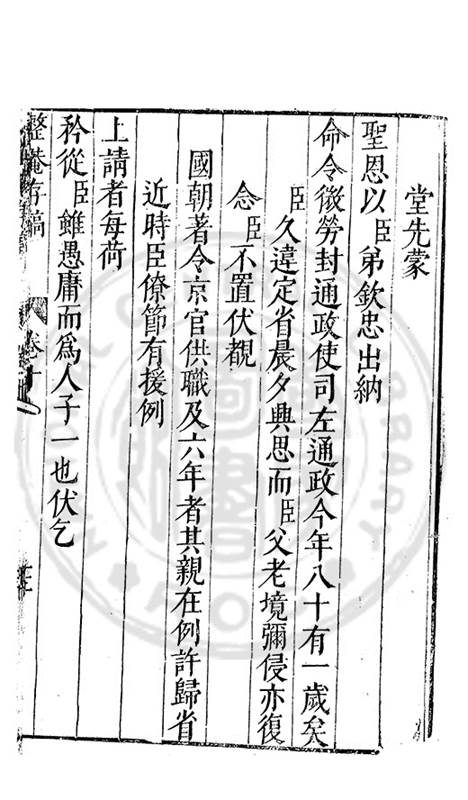 堂先蒙
聖恩以臣弟欽忠出納
命令徵勞封通政使司左通政今年八十有一歲矣
臣久違定省晨夕興思而臣父老境彌侵亦復
念臣不置伏覩
國朝著令京官供職及六年者其親在例許歸省
近時臣僚節有援例
上請者每荷
矜從臣雖愚庸而為人子一也伏乞
整菴存稿 卷十